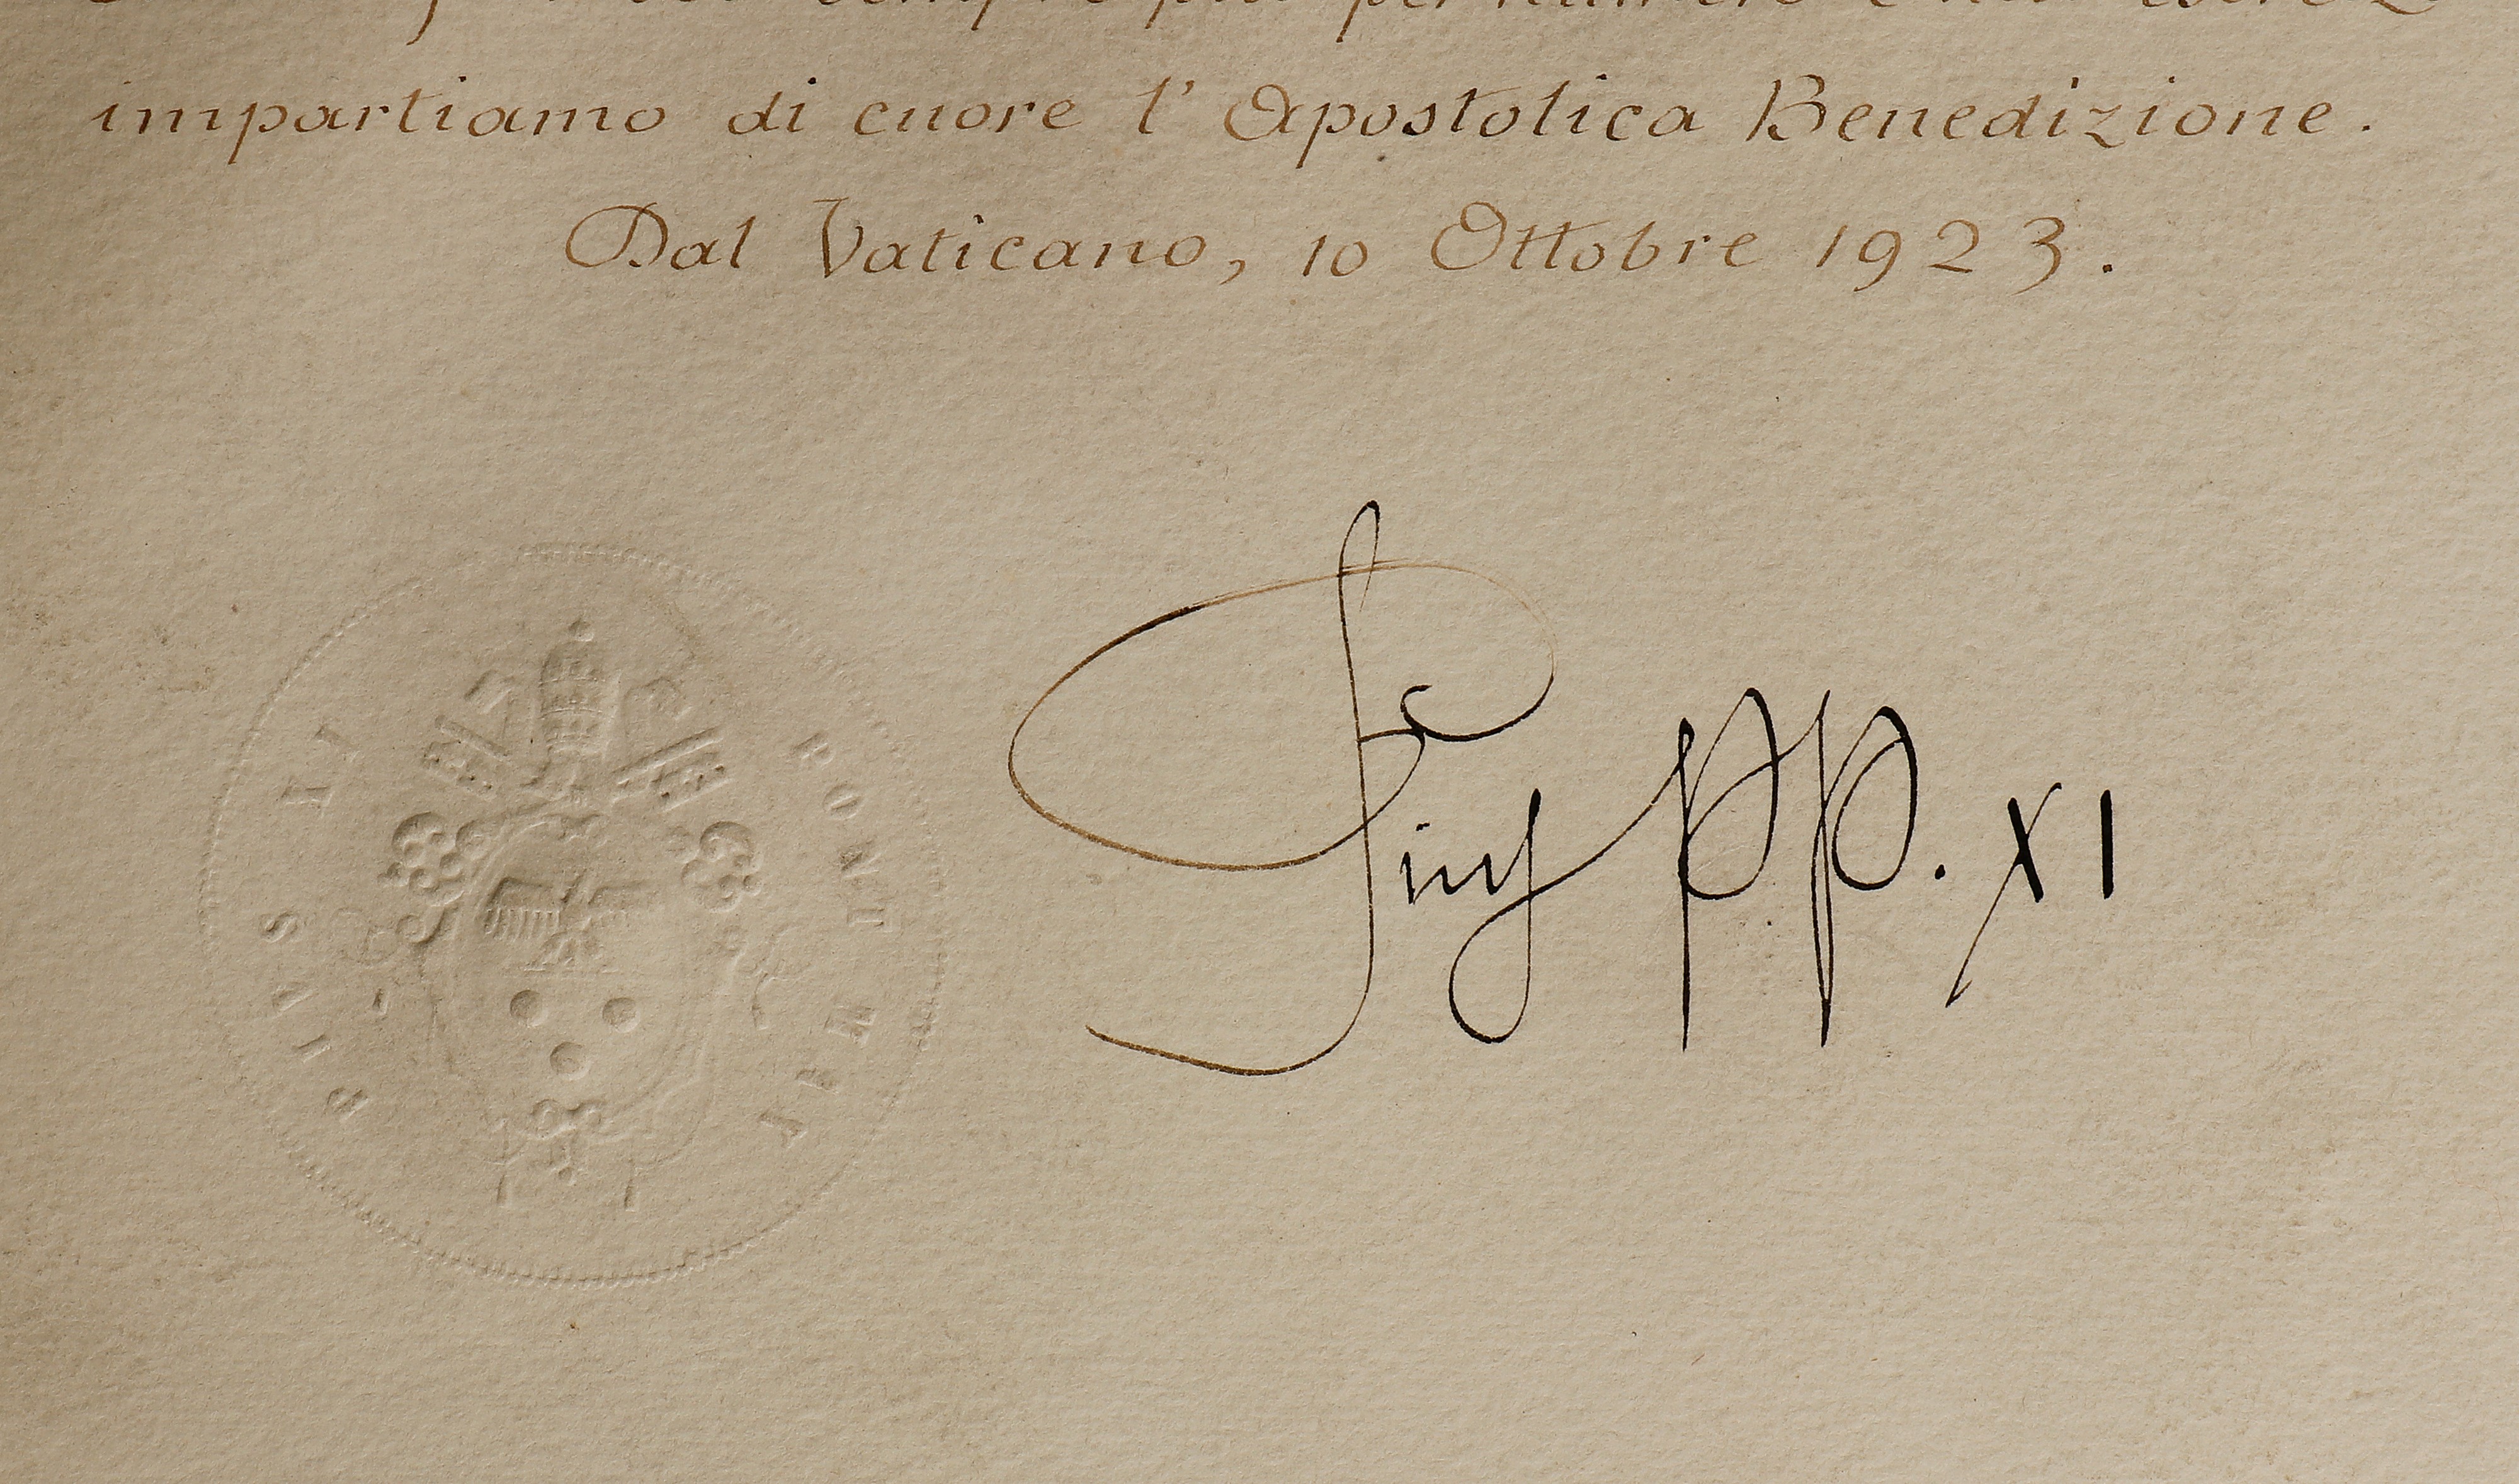 sempre più per numero e
impartiamo di cuore l' Apostolica Benedizione.
Dal Vaticano, 10 Ottobre 1923.
Pius PP. XI